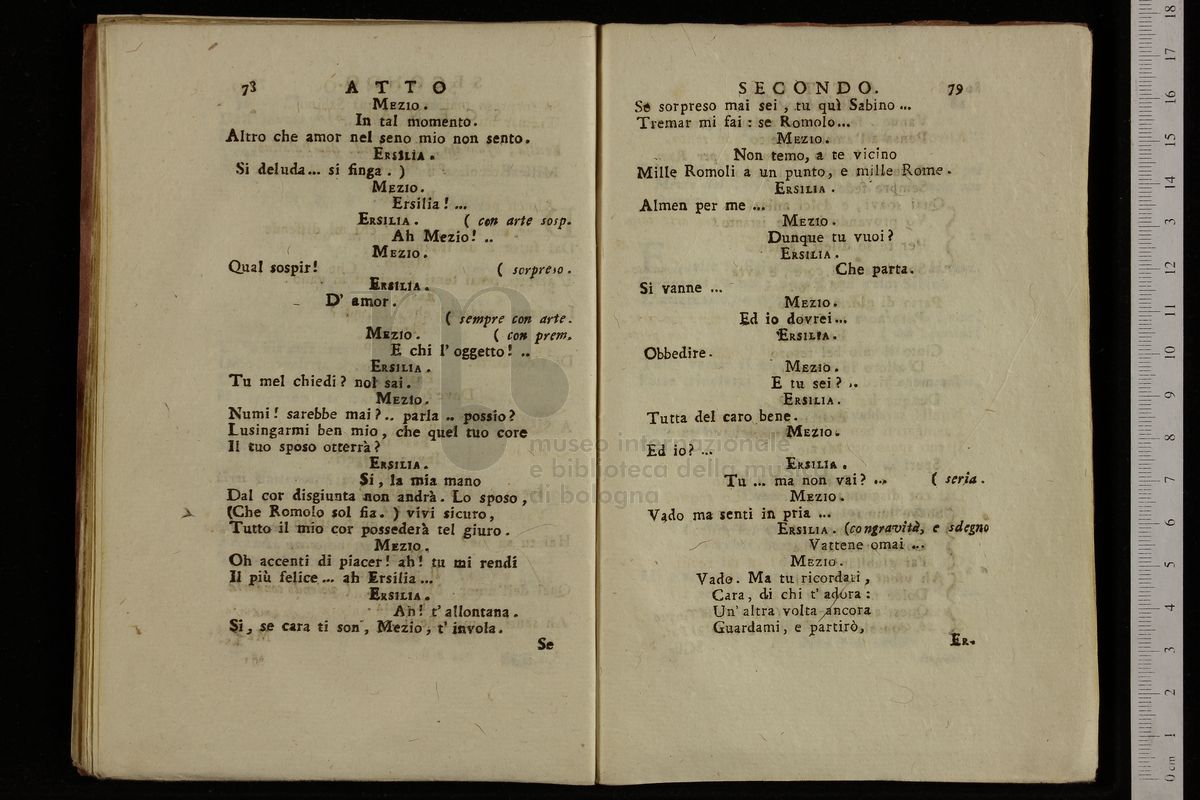 78 ATTO
MEZIO.
In tal momento.
Altro che amor nel seno mio non sento.
ERSILIA.
Si deluda... si finga. )
MEZIO.
Ersilia! ...
ERSILIA. ( con arte sosp.
Ah Mezio! ..
MEZIO.
Qual sospir! ( sorpreso.
ERSILIA.
D' amor.
( sempre con arte.
MEZIO. ( con prem.
E chi l' oggetto! ..
ERSILIA.
Tu mel chiedi? nol sai.
MEZIO.
Numi! sarebbe mai?.. parla .. possio?
Lusingarmi ben mio, che quel tuo core
Il tuo sposo otterrà?
ERSILIA.
Si, la mia mano
Dal cor disgiunta non andrà. Lo sposo,
(Che Romolo sol fia. ) vivi sicuro,
Tutto il mio cor possederà tel giuro.
MEZIO.
Oh accenti di piacer! ah! tu mi rendi
Il più felice... ah Ersilia...
ERSILIA.
Ah! t' allontana.
Si, se cara ti son, Mezio, t' invola.
Se
SECONDO. 79
Se sorpreso mai sei, tu quì Sabino...
Tremar mi fai: se Romolo...
MEZIO.
Non temo, a te vicino
Mille Romoli a un punto, e mille Rome.
ERSILIA.
Almen per me ...
MEZIO.
Dunque tu vuoi?
ERSILIA.
Che parta.
Si vanne ...
MEZIO.
Ed io dovrei...
ERSILIA.
Obbedire.
MEZIO.
E tu sei? ..
ERSILIA.
Tutta del caro bene.
MEZIO.
Ed io? ...
ERSILIA.
Tu ... ma non vai? ... ( seria.
MEZIO.
Vado ma senti in pria ...
ERSILIA. (con gravità, e sdegno
Vattene omai ...
MEZIO.
Vado. Ma tu ricordati,
Cara, di chi t' adora:
Un' altra volta ancora
Guardami, e partirò,
ER-
museo internazionale
e biblioteca della musica
di bologna
0 cm 1 2 3 4 5 6 7 8 9 10 11 12 13 14 15 16 17 18